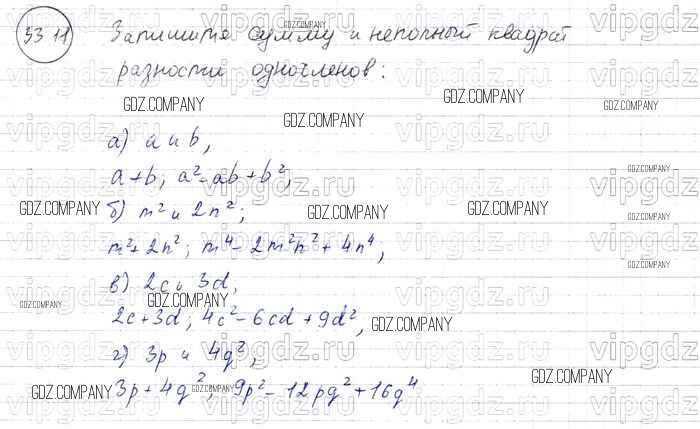 33 11 Запишите сумму и неполный квадрат
разности одночленов:
а) a и b,
a+b; a²-ab+b²,
б) m² и 2n²;
m²+2n²; m⁴-2m²n²+4n⁴;
в) 2c и 3d,
2c+3d; 4c²-6cd+9d²,
г) 3p и 4q²,
3p+4q²; 9p²-12pq²+16q⁴
GDZ.COMPANY
vipgdz.ru